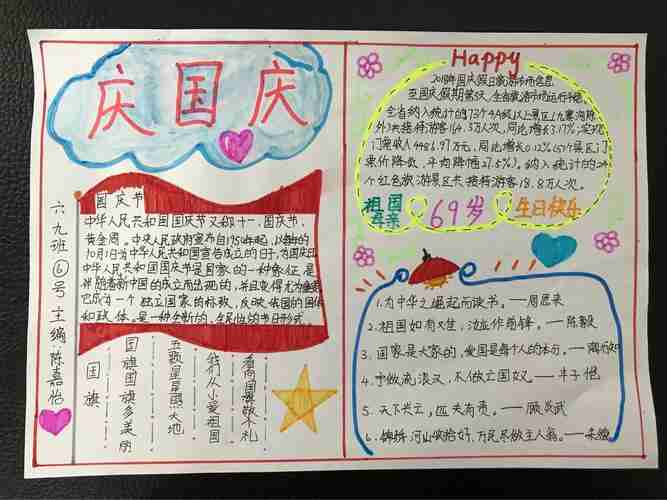 庆国庆
六九班⑥号 主编:陈嘉怡
国庆节
中华人民共和国国庆节又称十一、国庆节、
黄金周。中央人民政府宣布自1950年起,以每年的
10月1日为中华人民共和国宣告成立的日子,为国庆日
中华人民共和国国庆节是国家的一种象征,是
伴随着新中国的成立而出现的,并且变得尤为重要
它成为一个独立国家的标致,反映我国的国体
和政体。是一种全新的、全民性的节日形式。
国旗
国旗国旗多美丽
五颗星星照大地
我们从小爱祖国
看向国旗敬个礼
Happy
2018年国庆假日旅游市场信息
至国庆假期第5天,全省旅游市场运行平稳。
全省纳入统计的73个4A级以上景区(九寨沟除
外)共接待游客164.3万人次,同比增长3.17%;实现
门票收入4486.97万元,同比增长0.12%(57个景区门
票价降救,平均降幅27.5%)。纳入统计的
个红色旅游景区共接待游客18.8万人次。
祖国母亲 69岁 生日快乐
1.为中华之崛起而读书。——周恩来
2.祖国如有难,汝应作前锋。——陈毅
3.国家是大家的,爱国是每个人的本分。——陶行知
4.宁做流浪汉,不做亡国奴。——丰子恺
5.天下兴亡,匹夫有责。——顾炎武
6.锦绣河山收拾好,万民尽做主人翁。——朱德